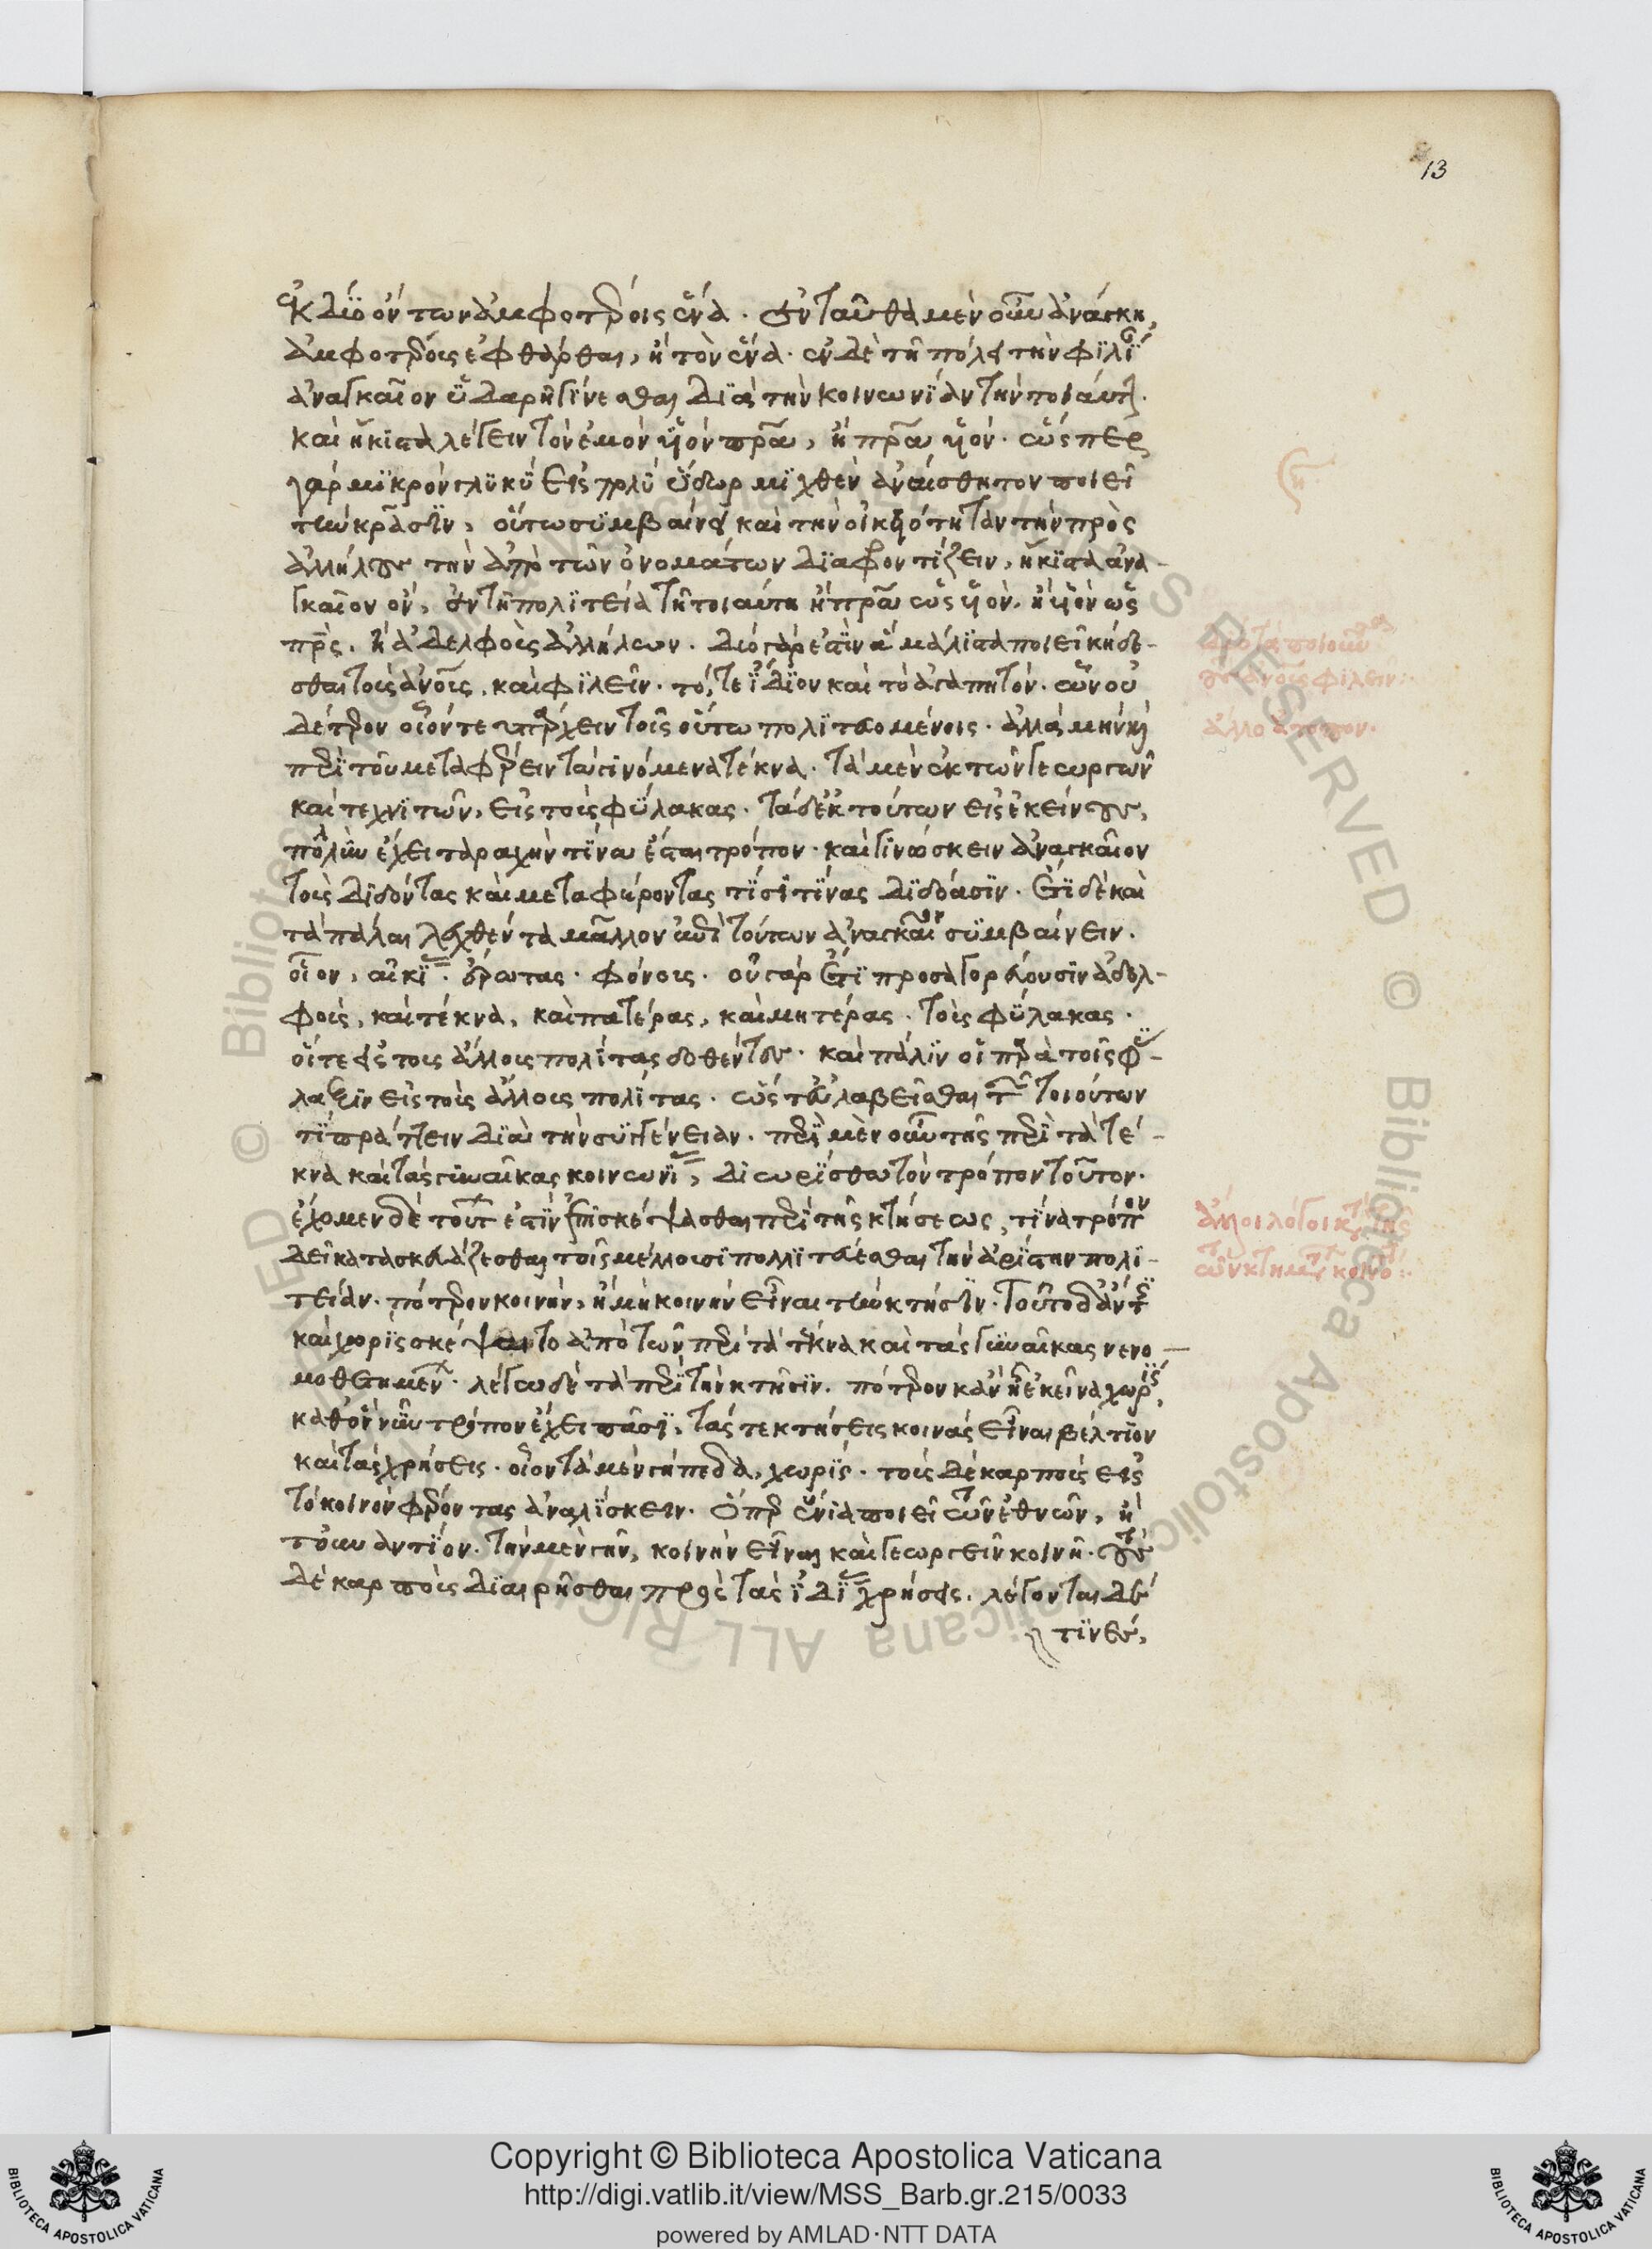 13
ἐκ δύο ὄντων ἀμφοτέροις ἕνα. ἐνταῦθα μὲν οὖν ἀνάγκη,
ἀμφοτέροις ἐφθάρθαι, ἢ τὸν ἕνα. ἐν δὲ τῇ πόλει τὴν φιλίαν
ἀναγκαῖον ὑδαρῆ γίνεσθαι διὰ τὴν κοινωνίαν τὴν τοιαύτην.
καὶ ἥκιστα λέγειν τὸν ἐμὸν υἱὸν πρα, ἢ πρα υἱόν. ὥσπερ
γὰρ μικρὸν γλυκὺ εἰς πολὺ ὕδωρ μιχθὲν ἀναίσθητον ποιεῖ
τὴν κρᾶσιν, οὕτω συμβαίνει καὶ τὴν οἰκειότητα τὴν πρὸς
ἀλλήλους τὴν ἀπὸ τῶν ὀνομάτων διαφροντίζειν, ἥκιστα ἀνα-
γκαῖον ὄν, ἐν τῇ πολιτείᾳ τῇ τοιαύτῃ ἢ πρα ὡς υἱόν. ἢ υἱὸν ὡς
πρς. ἢ ἀδελφοὺς ἀλλήλων. δύο γάρ ἐστιν ἃ μάλιστα ποιεῖ κήδε-
σθαι τοὺς ἀνους, καὶ φιλεῖν. τό, τε ἴδιον καὶ τὸ ἀγαπητόν. ὧν οὐ
δέτερον οἷόν τε ὑπάρχειν τοῖς οὕτω πολιτευομένοις. ἀλλὰ μὴν καὶ
περὶ τοῦ μεταφέρειν τὰ γινόμενα τέκνα. τὰ μὲν ἐκ τῶν γεωργῶν
καὶ τεχνιτῶν, εἰς τοὺς φύλακας. τὰ δ' ἐκ τούτων εἰς ἐκείνους,
πολλὴν ἔχει ταραχὴν τίνα ἔσται τρόπον. καὶ γινώσκειν ἀναγκαῖον
τοὺς διδόντας καὶ μεταφέροντας τίσι τίνας διδόασιν. ἔτι δὲ καὶ
τὰ πάλαι λεχθέντα μᾶλλον ἐπὶ τούτων ἀναγκαῖον συμβαίνειν.
οἷον, αἰκίας. ἔρωτας. φόνους. οὐ γὰρ ἔτι προσαγορεύουσιν ἀδελ-
φοὺς, καὶ τέκνα, καὶ πατέρας, καὶ μητέρας. τοὺς φύλακας.
οἵ τε εἰς τοὺς ἄλλους πολίτας δοθέντες. καὶ πάλιν οἱ παρὰ τοῖς φύ-
λαξιν εἰς τοὺς ἄλλους πολίτας. ὥστ' εὐλαβεῖσθαι τῶν τοιούτων
τι πράττειν διὰ τὴν συγγένειαν. περὶ μὲν οὖν τῆς περὶ τὰ τέ-
κνα καὶ τὰς γυναῖκας κοινωνίας, διωρίσθω τὸν τρόπον τοῦτον.
ἐχόμενον δὲ τούτων ἐστὶν ἐπισκέψασθαι περὶ τῆς κτήσεως, τίνα τρόπον
δεῖ κατασκευάζεσθαι τοῖς μέλλουσι πολλιτεύεσθαι τὴν ἀρίστην πολι-
τείαν. πότερον κοινὴν, ἢ μὴ κοινὴν εἶναι τὴν κτῆσιν. τοῦτο δ' ἄν τις
καὶ χωρὶς σκέψαιτο ἀπὸ τῶν περὶ τὰ τέκνα καὶ τὰς γυναῖκας νενο-
μοθετημένων. λέγω δὲ τὰ περὶ τὴν κτῆσιν. πότερον κἂν ᾖ ἐκεῖνα χωρίς,
καθ' ὃν νῦν τρόπον ἔχει πᾶσι, τάς τε κτήσεις κοινὰς εἶναι βέλτιον
καὶ τὰς χρήσεις. οἷον τὰ μὲν γήπεδα, χωρίς. τοὺς δὲ καρποὺς εἰς
τὸ κοινὸν φέροντας ἀναλίσκειν. ὅπερ ἔνια ποιεῖ τῶν ἐθνῶν, ἢ
τοὐναντίον. τὴν μὲν γῆν, κοινὴν εἶναι καὶ γεωργεῖν κοινῇ. τοὺς
δὲ καρποὺς διαιρῆσθαι πρὸς τὰς ἰδίας χρήσεις. λέγονται δέ
τινες,
ποιοῦσι
ἀνους φιλεῖν:
ἄλλο ἄτοπον.
Copyright © Biblioteca Apostolica Vaticana
http://digi.vatlib.it/view/MSS_Barb.gr.215/0033
powered by AMLAD·NTT DATA
BIBLIOTECA APOSTOLICA VATICANA
BIBLIOTECA APOSTOLICA VATICANA